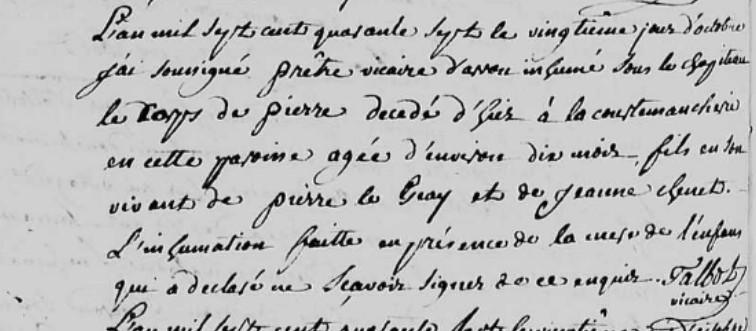 L'an mil sept cent quarante sept le vingtième jour d'octobre
j'ai soussigné prêtre vicaire d'avon inhumé sous le chapiteau
le corps de pierre decedé d'hier à la courtemancherie
en cette paroisse agée d'environ dix mois, fils en son
vivant de pierre le Gray et de Jeanne chenet.
L'inhumation faitte en présence de la mere de l'enfans
qui a declaré ne sçavoir signer de ce enquis. Talbot
vicaire
L'an mil sept cent quarante sept le